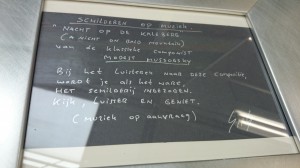 SCHILDEREN OP MUZIEK.
"NACHT OP DE KALEBERG
(A NIGHT ON BALD MOUNTAIN)
VAN DE KLASSIEKE COMPONIST
MODEST MUZORGSKY
BIJ HET LUISTEREN NAAR DEZE COMPOSITIE,
WORDT JE ALS HET WARE,
HET SCHILDERIJ INGEZOGEN.
KIJK, LUISTER EN GENIET.
(MUZIEK OP AANVRAAG)